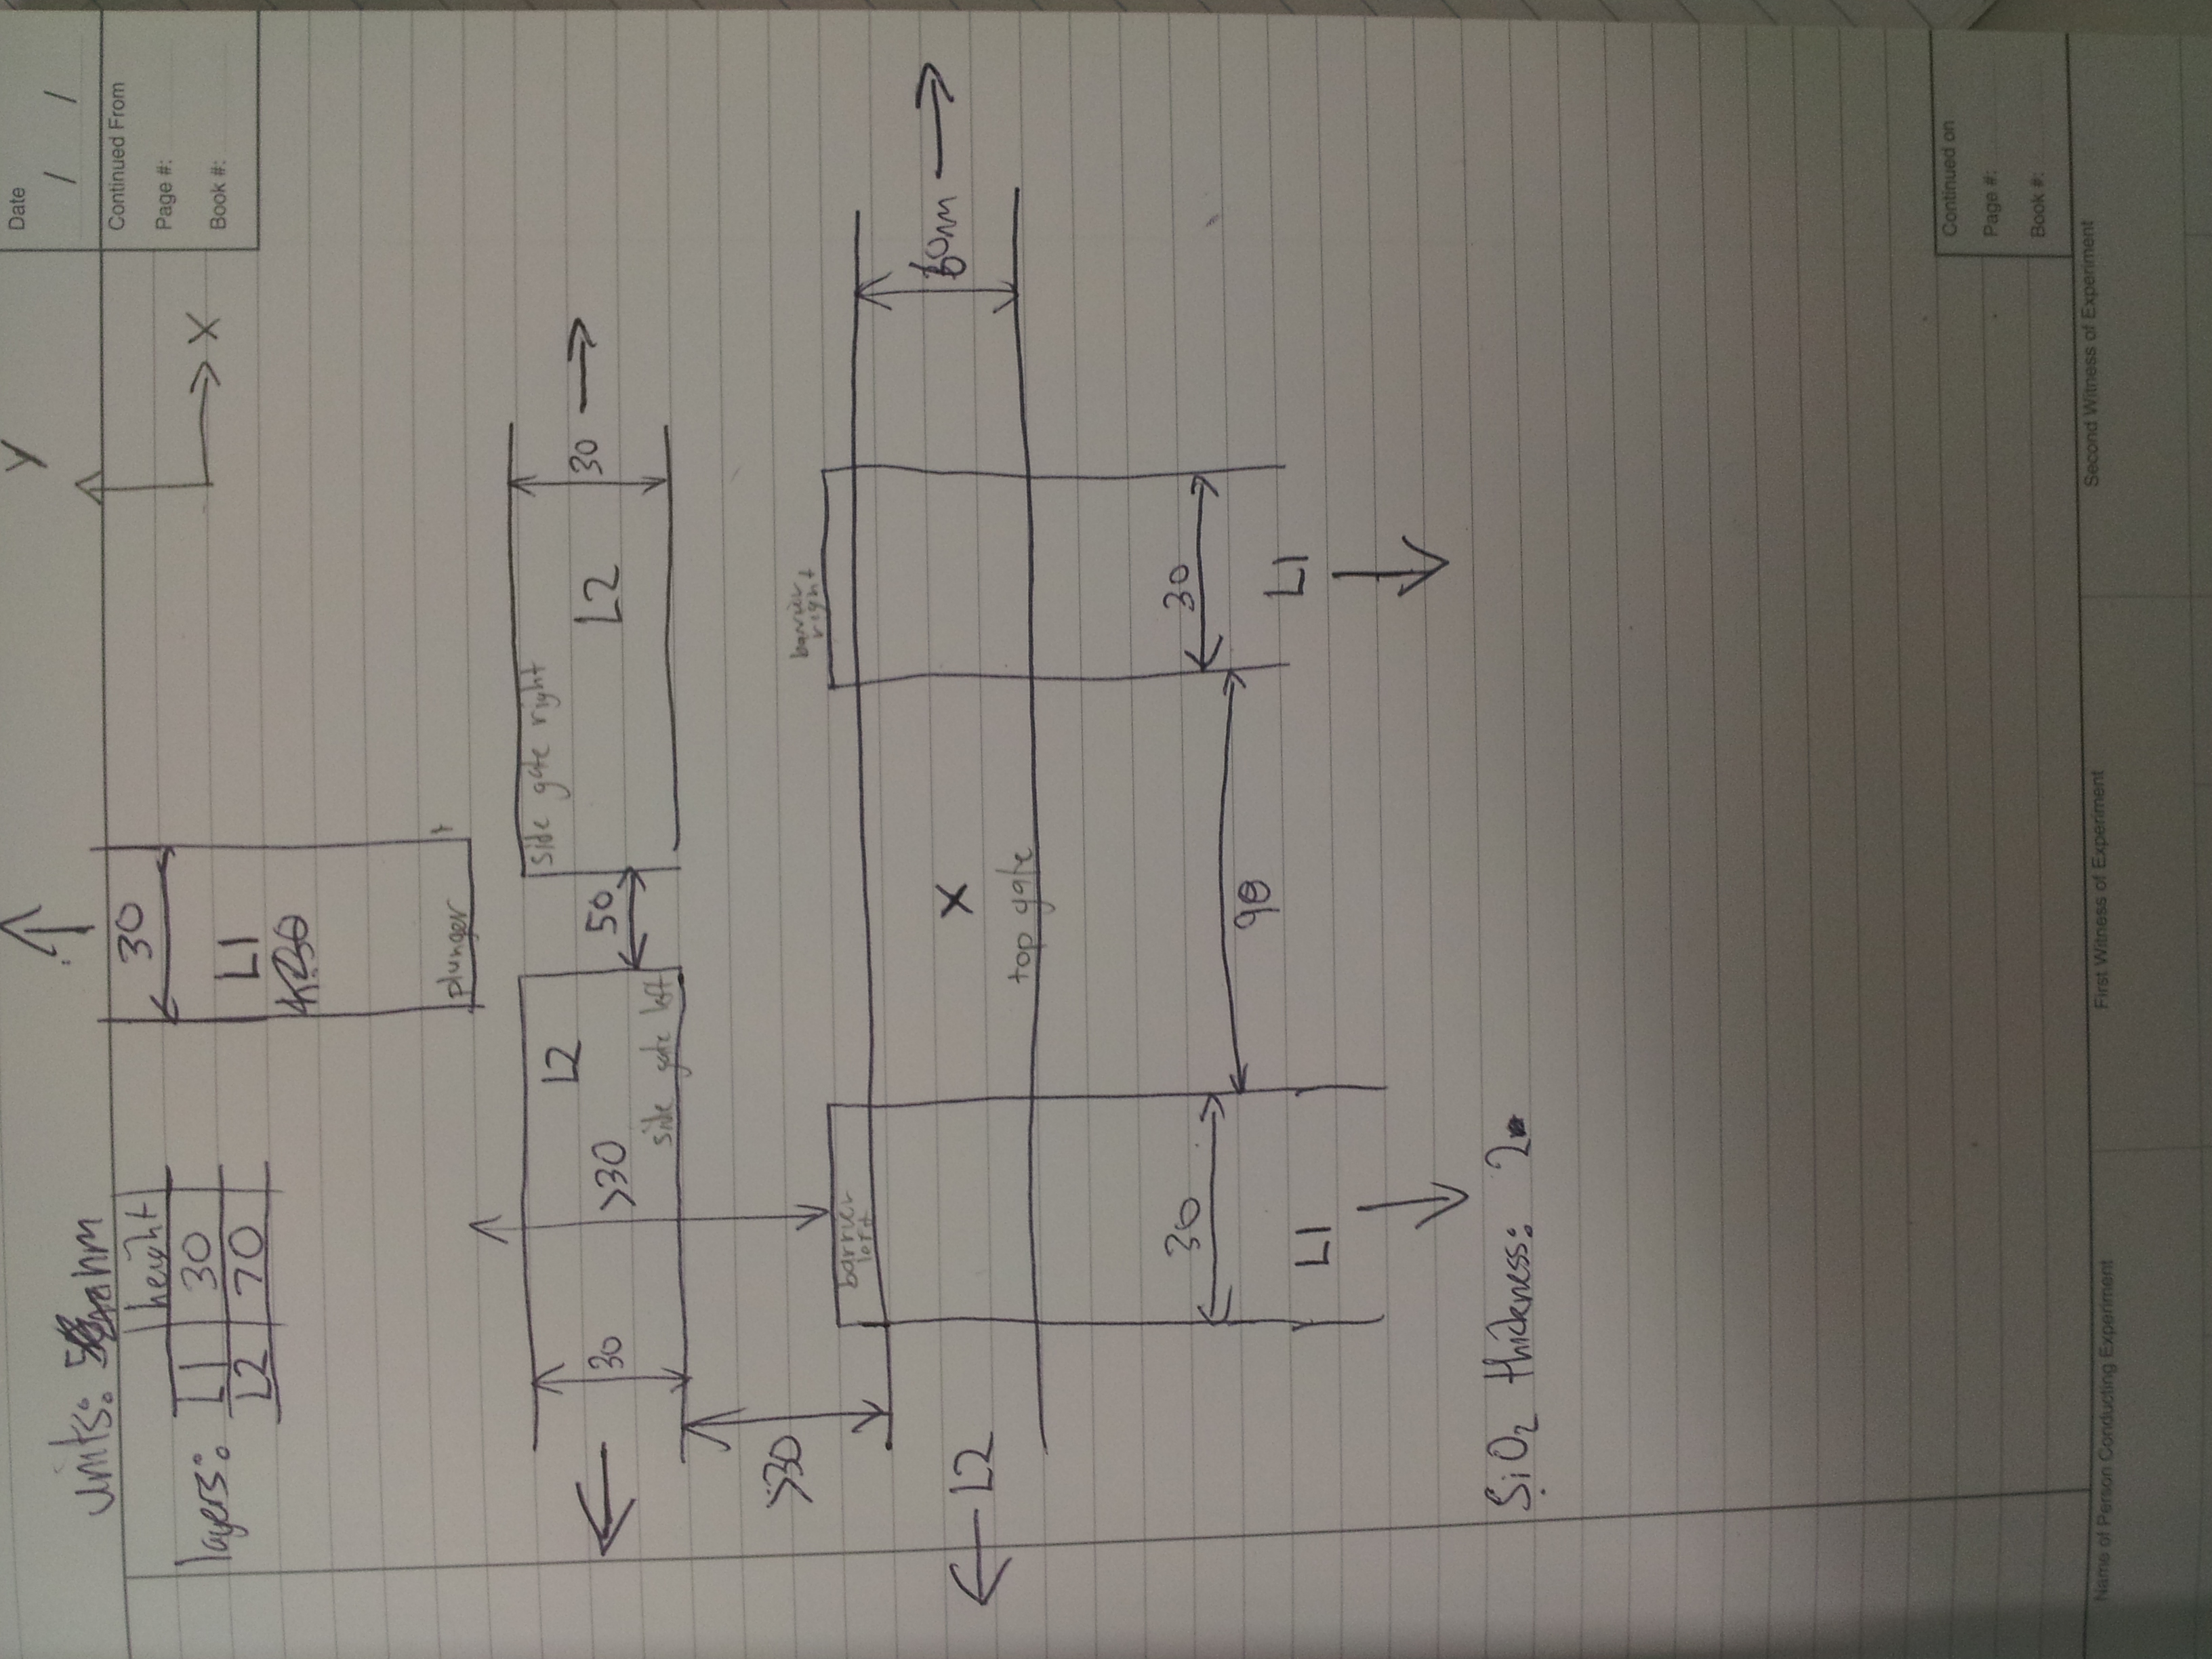 Date
/ /
Continued From
Page #:
Book #:
Y
X
units: nm
layers:
height
L1 30
L2 70
30
L1
plunger
L2
side gate left
>30
30
50
side gate right
L2
30
>30
barrier left
barrier right
X
top gate
L2
30
L1
90
30
L1
SiO2 thickness: 2
Continued on
Page #:
Book #:
Name of Person Conducting Experiment
First Witness of Experiment
Second Witness of Experiment